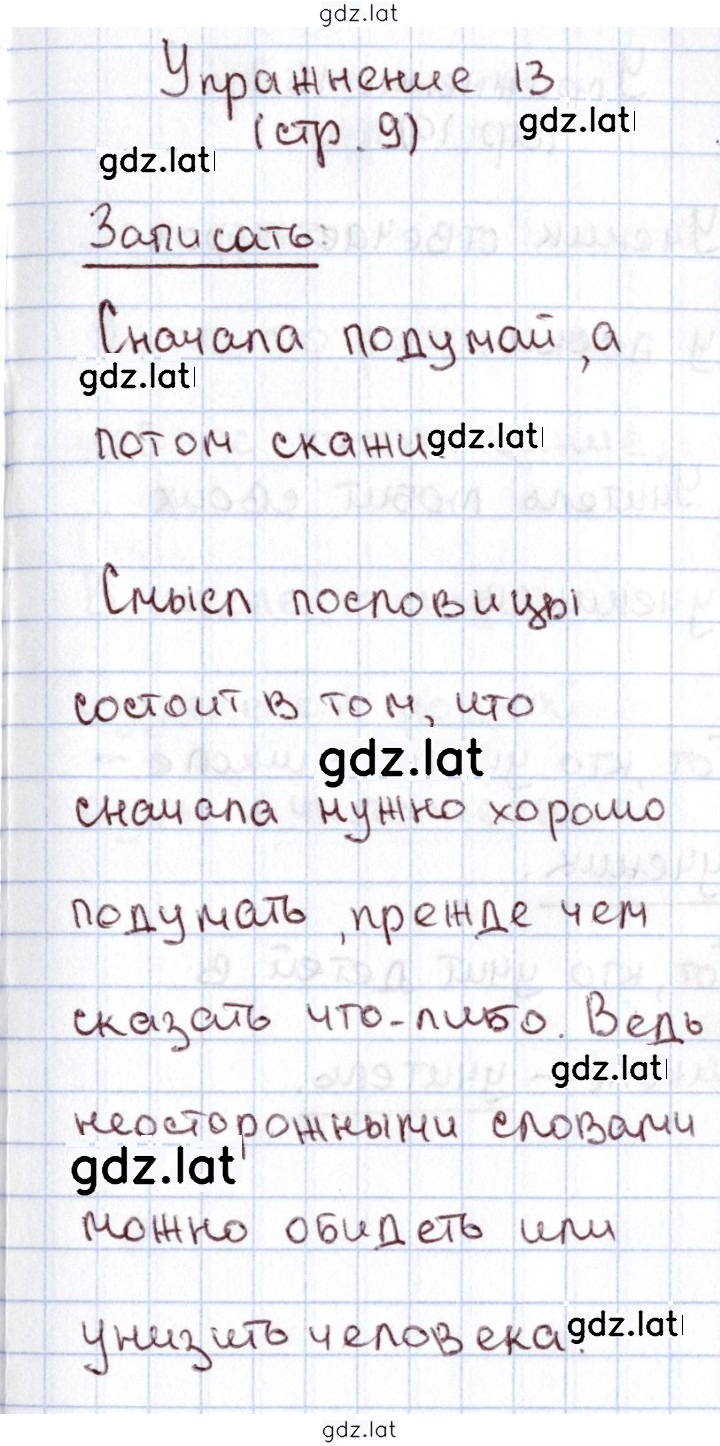 gdz.lat
Упражнение 13
(стр. 9)
gdz.lat
gdz.lat
Записать:
Сначала подумай, а
gdz.lat
потом скажи.
gdz.lat
Смысл пословицы
состоит в том, что
gdz.lat
сначала нужно хорошо
подумать, прежде чем
сказать что-либо. Ведь
gdz.lat
неосторожными словами
gdz.lat
можно обидеть или
унизить человека.
gdz.lat
gdz.lat